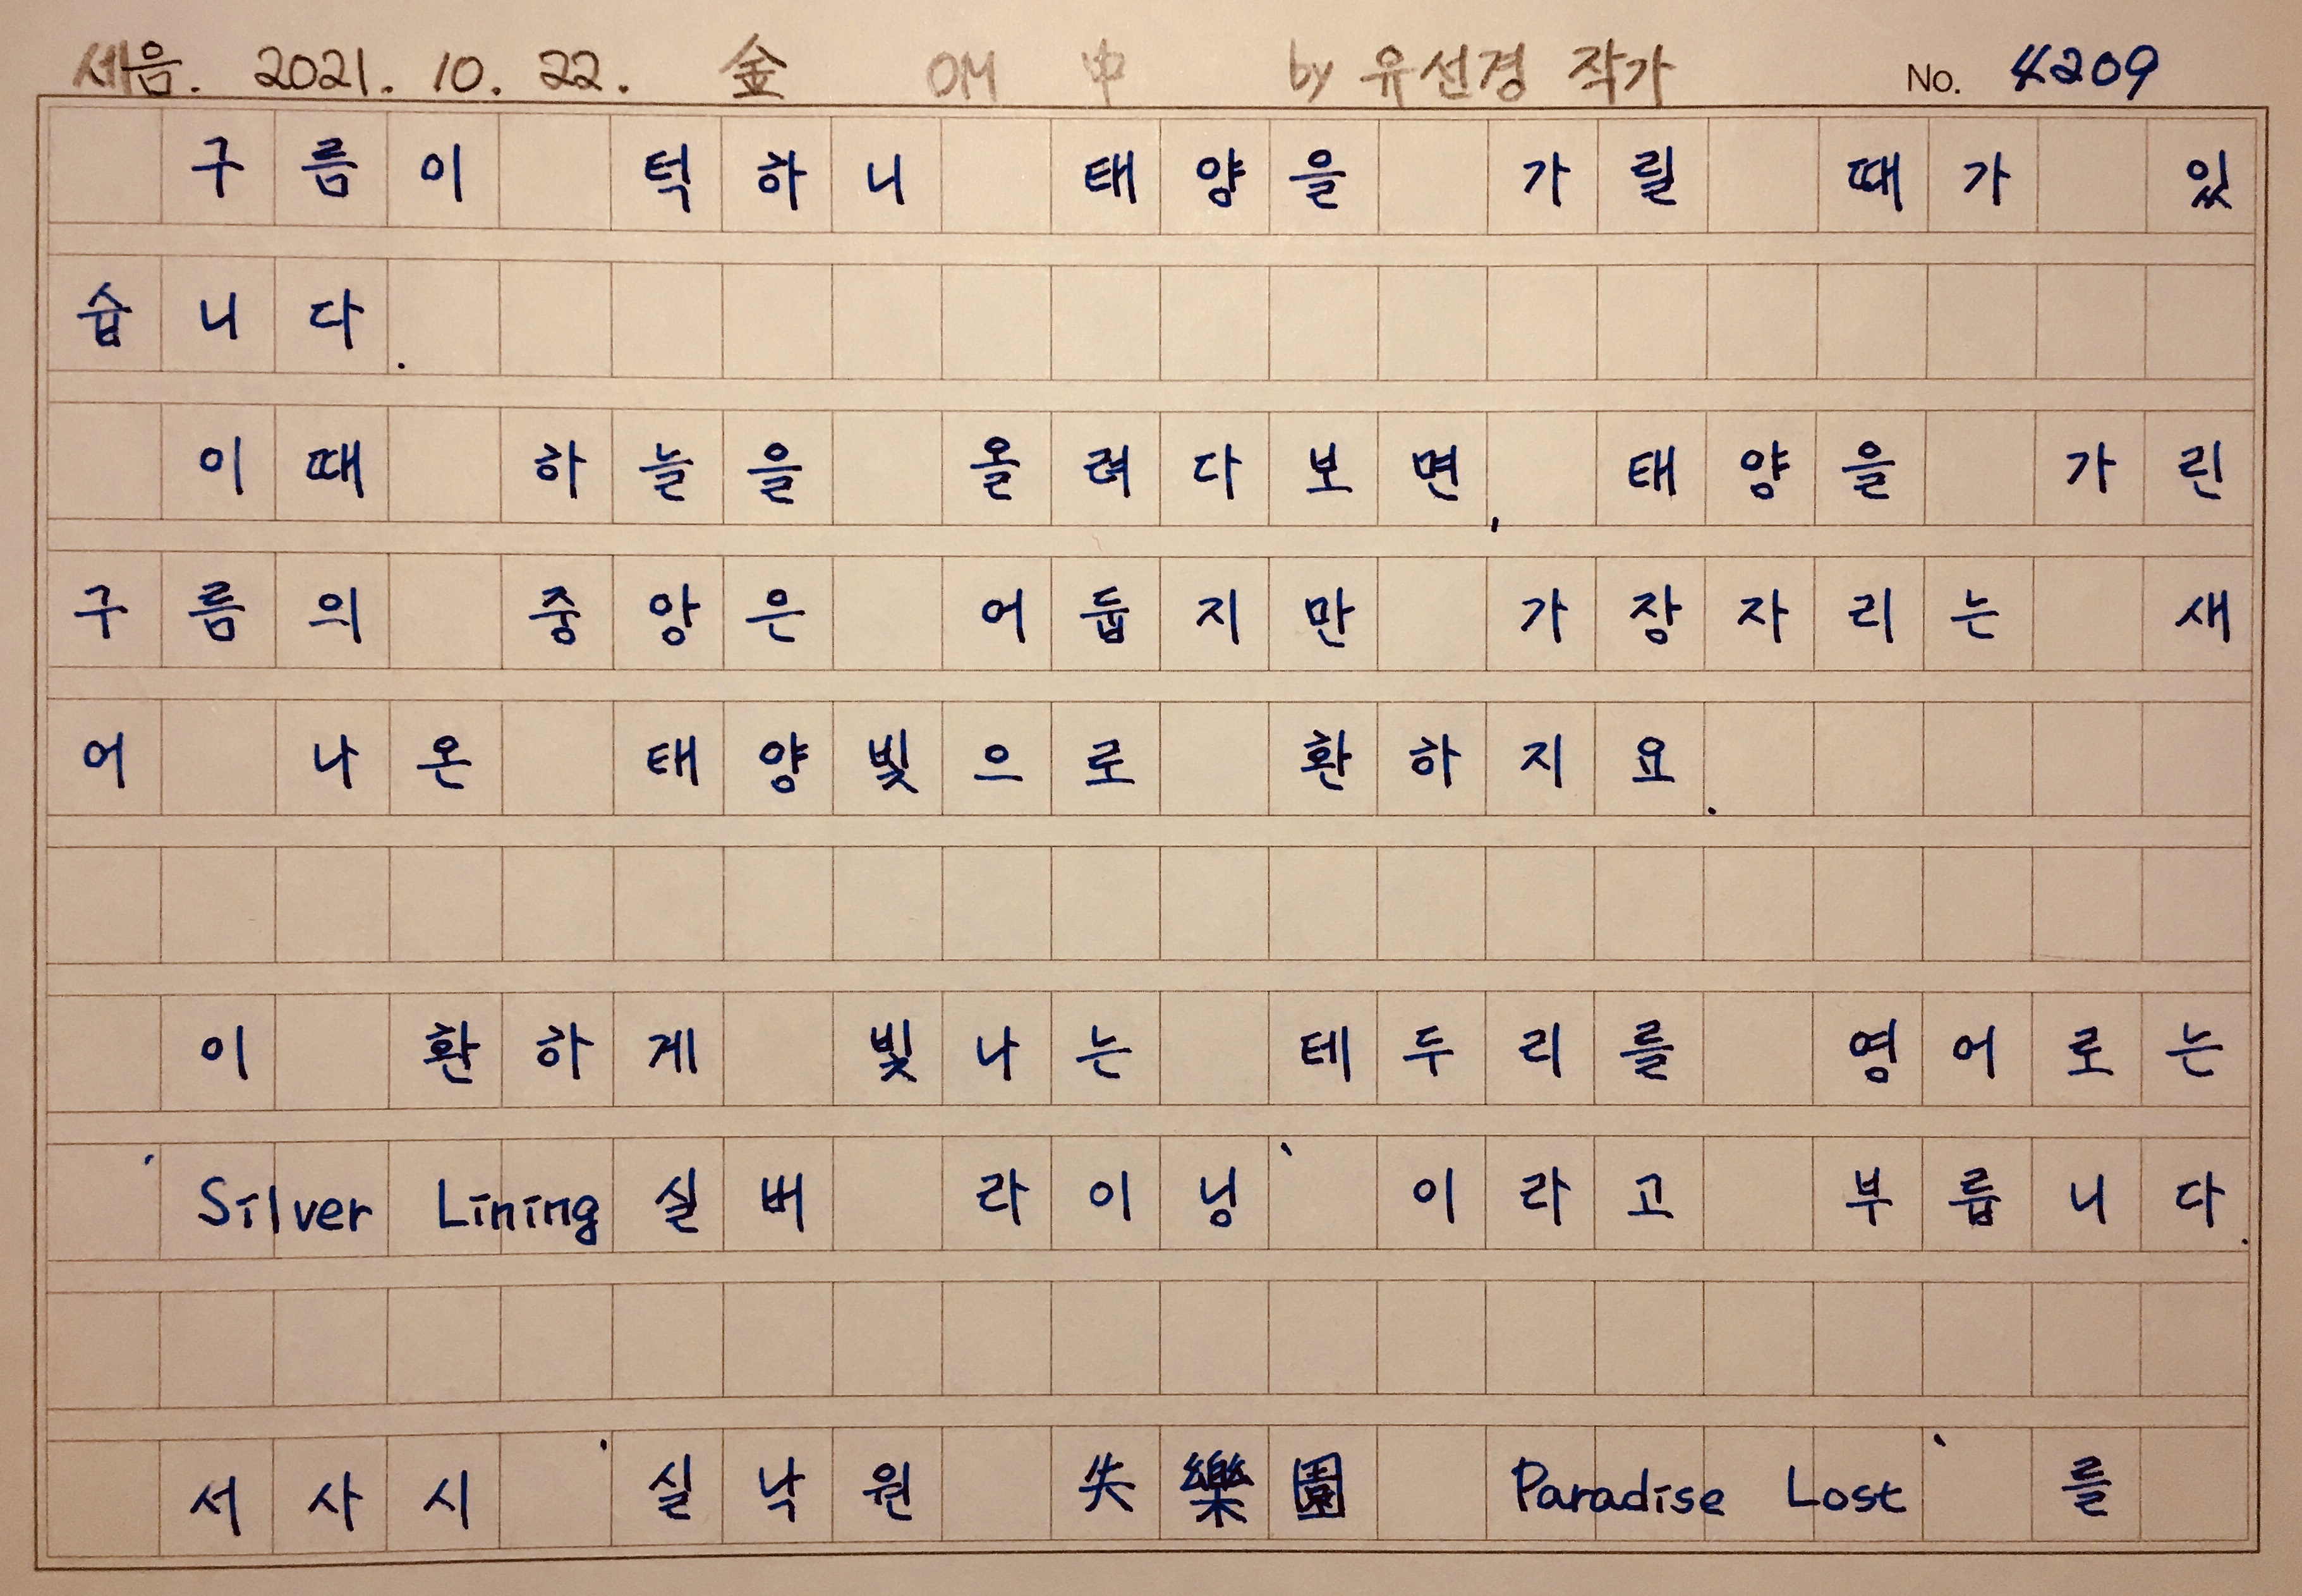 세음. 2021. 10. 22. 金 OM 中 by 유선경 작가 No. 4209
구름이 턱하니 태양을 가릴 때가 있
습니다.
이때 하늘을 올려다보면, 태양을 가린
구름의 중앙은 어둡지만 가장자리는 새
어 나온 태양빛으로 환하지요.
이 환하게 빛나는 테두리를 영어로는
'Silver Lining 실버 라이닝' 이라고 부릅니다.
서사시 '실낙원 失樂園 Paradise Lost' 를